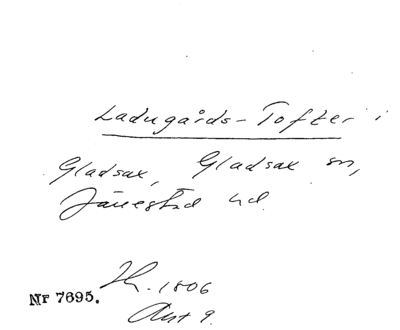 Ladugårds-Tofter i
Gladsax, Gladsax sn,
Järrestad hd.
Nr 7695.
1806
Akt 9.